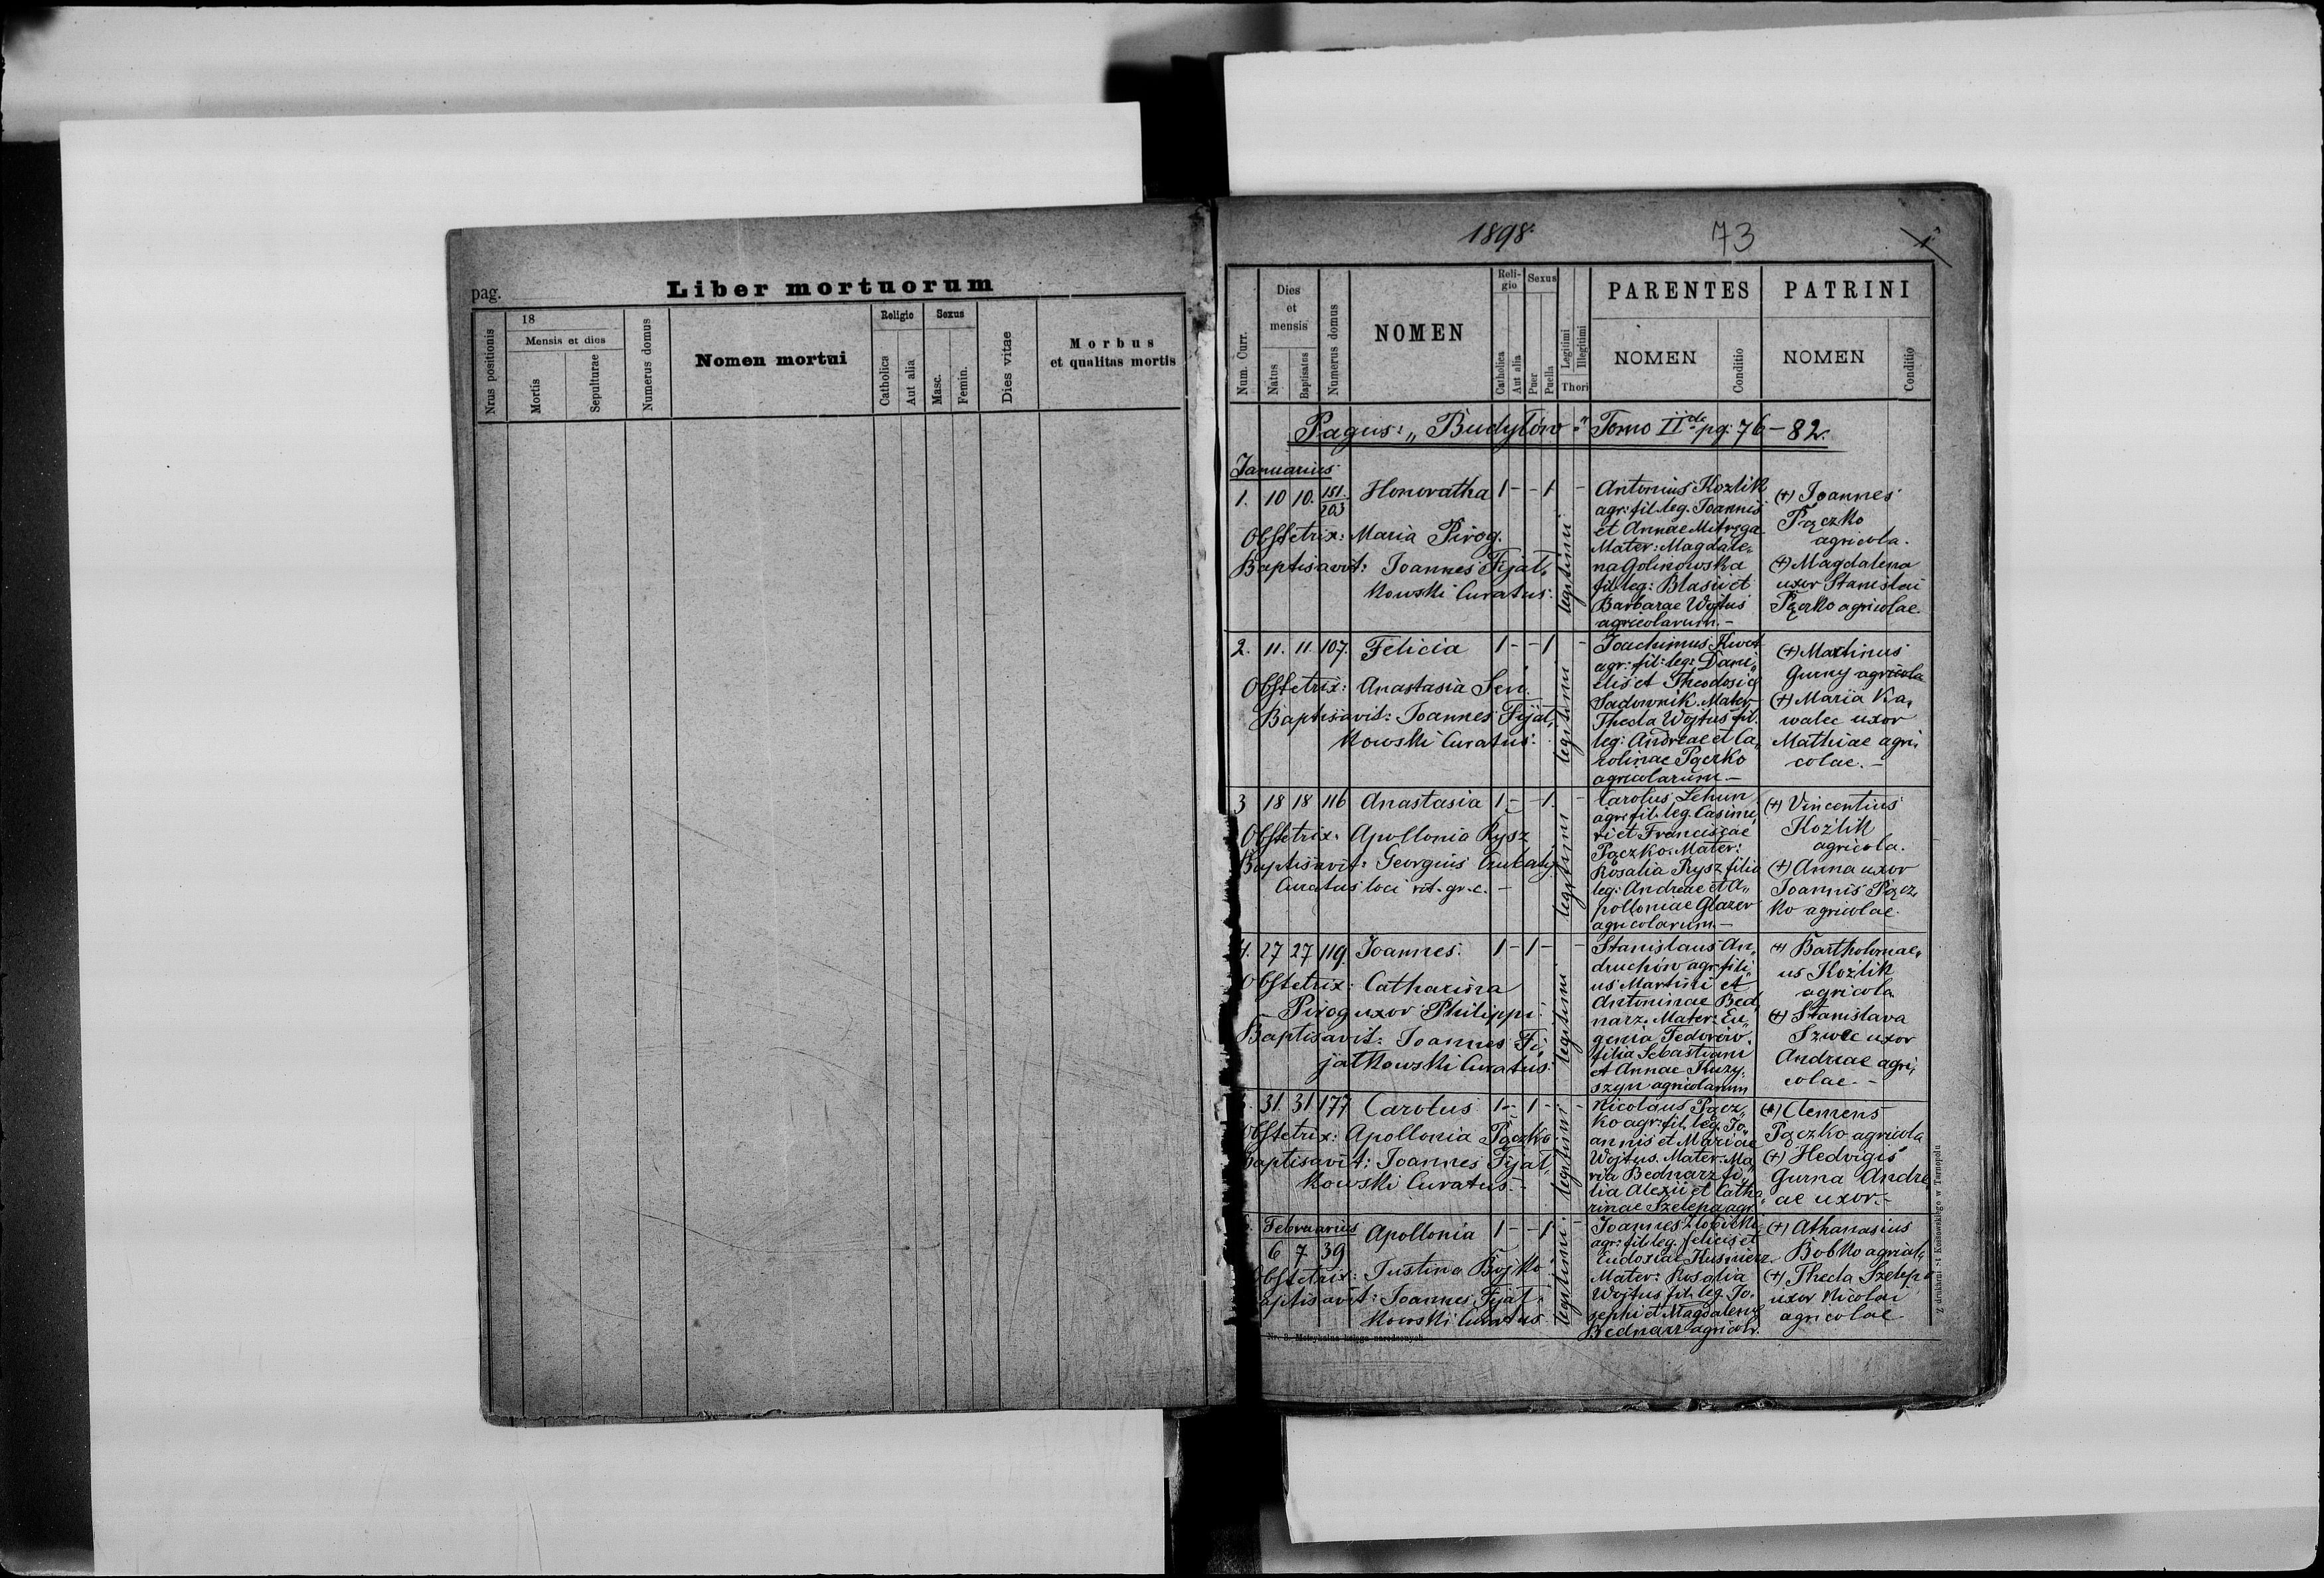 pag.
Liber mortuorum
Nrus positionis
18
Mensis et dies
Mortis
Sepulturae
Numerus domus
Nomen mortui
Religio
Catholica
Aut alia
Sexus
Masc.
Femin.
Dies vitae
Morbus
et qualitas mortis
1898.
73
1
Num. Curr.
Dies
et
mensis
Natus
Baptisatus
Numerus domus
NOMEN
Reli-
gio
Catholica
Aut alia
Sexus
Puer
Puella
Legitimi
Illegitimi
Thori
PARENTES
NOMEN
Conditio
PATRINI
NOMEN
Conditio
Pagus: „Budyłów" Tomo II de pg: 76 - 82.
Januarius
1. 10 10. 151. 203 Honoratha 1 - - 1 -
Obstetrix: Maria Pirog.
Baptisavit: Joannes Fijał„
kowski Curatus.
legitimi
Antonius Kozlik
agr: fil. leg. Joannis
et Annae Mitręga
Mater: Magdale„
na Golinowska
fil. leg: Blasii et
Barbarae Wojtus
agricolarum. -
(+) Joannes
Pączko
agricola.
(+) Magdalena
uxor Stanislai
Pączko agricolae.
2. 11. 11. 107. Felicia 1 - - 1 -
Obstetrix: Anastasia Sen.
Baptisavit: Joannes Fijał„
kowski Curatus.
legitimi
Joachimus Kwat
agr: fil: leg: Dani„
elis et Theodosiae
Sadownik. Mater
Thecla Wojtus fil.
leg: Andreae et Ca„
rolinae Pączko
agricolarum -
(+) Martinus
Gurny agricola
(+) Maria Ka„
walec uxor
Mathiae agri„
colae. -
3 18 18 116 Anastasia 1 - - 1. -
Obstetrix: Apollonia Rysz
Baptisavit: Georgius
Curatus loci rit. gr. c. -
legitimi
Carolus Lehun
agr: fil. leg. Casimi„
ri et Franciscae
Pączko. Mater:
Rosalia Rysz filia
leg: Andreae et A„
polloniae Glazer
agricolarum. -
(+) Vincentius
Kozlik
agricola.
(+) Anna uxor
Joannis Pącz„
ko agricolae.
4. 27 27 119. Joannes. 1 - 1 - -
Obstetrix: Catharina
Pirog uxor Philippi.
Baptisavit: Joannes Fi„
jałkowski Curatus.
legitimi
Stanislaus An„
druchów agr. fili„
us Martini et
Antoninae Bed„
narz. Mater: Eu„
genia Fedorów.
filia Sebastiani
et Annae Kuzy„
szyn agricolarum
(+) Bartholomae„
us Kozlik
agricola
(+) Stanislava
Szwec uxor
Andreae agri„
colae. -
31. 31 177 Carolus 1 - 1 - -
Obstetrix: Apollonia Pączko
Baptisavit: Joannes Fijał„
kowski Curatus. -
legitimi
Nicolaus Pącz„
ko agr: fil. leg. Jo„
annis et Mariae
Wojtus. Mater: Ma„
ria Bednarz fi„
lia Alexii et Catha„
rinae Szelepa agr.
(+) Clemens
Pączko agricola
(+) Hedvigis
Gurna Andre„
ae uxor. -
Februarius
6 7 39 Apollonia 1 - - 1. -
Obstetrix: Justina Bojko
Baptisavit: Joannes Fijał„
kowski Curatus
legitimi.
Joannes Złobicki
agr: fil. leg. Felicis et
Eudoxiae Kusnierz
Mater: Rosalia
Wojtus fil. leg. Jo„
sephi et Magdalenae
Bednarz agricolr.
(+) Athanasius
Bobko agricol„
(+) Thecla Szelepa
uxor Nicolai
agricolae
Nr. 3. Metrykalna księga narodzonych
Z drukarni St. Kossowskiego w Tarnopolu